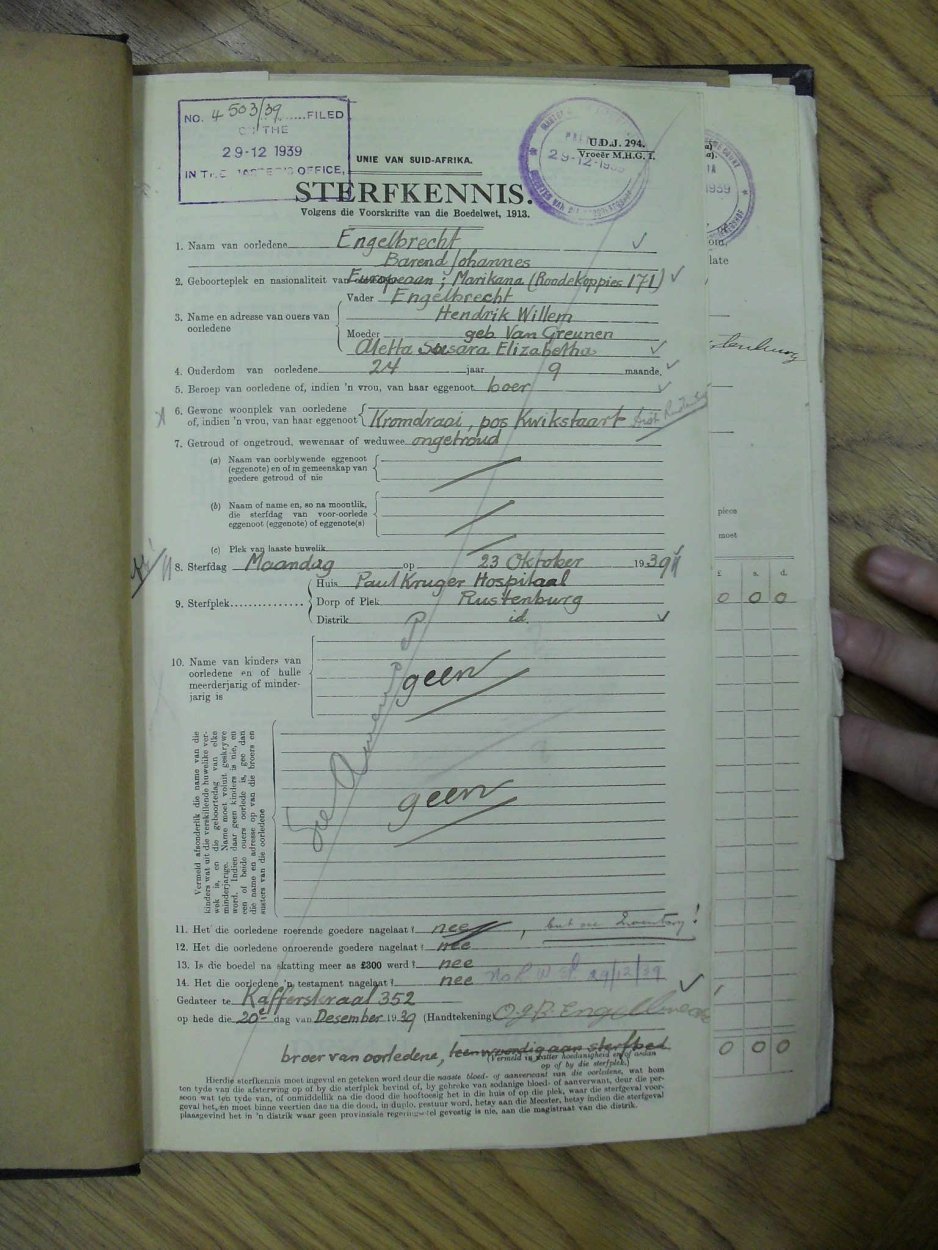 NO. 4503/39 ......FILED
ON THE
29-12 1939
IN THE MASTER'S OFFICE,
29-12-1939
U.D.J. 294.
Vroeër M.H.G. 1.
UNIE VAN SUID-AFRIKA.
STERFKENNIS.
Volgens die Voorskrifte van die Boedelwet, 1913.
1. Naam van oorledene Engelbrecht
Barend Johannes
2. Geboorteplek en nasionaliteit van Europeaan ; Marikana (Roodekoppies 171)
Vader Engelbrecht
Hendrik Willem
3. Name en adresse van ouers van oorledene
Moeder geb Van Greunen
Aletta Susara Elizabetha
4. Ouderdom van oorledene 24 jaar 9 maande.
5. Beroep van oorledene of, indien 'n vrou, van haar eggenoot boer
6. Gewone woonplek van oorledene
of, indien 'n vrou, van haar eggenoot Kromdraai, pos Kwikstaart
7. Getroud of ongetroud, wewenaar of weduwee ongetroud
(a) Naam van oorblywende eggenoot
(eggenote) en of in gemeenskap van
goedere getroud of nie
(b) Naam of name en, so na moontlik,
die sterfdag van voor-oorlede
eggenoot (eggenote) of eggenote(s)
(c) Plek van laaste huwelik
8. Sterfdag Maandag op 23 Oktober 1939
9. Sterfplek..............
Huis Paul Kruger Hospitaal
Dorp of Plek Rustenburg
Distrik id.
10. Name van kinders van
oorledene en of hulle
meerderjarig of minder-
jarig is
geen
Vermeld afsonderlik die name van die
kinders wat uit die verskillende huwelike ver-
wek is, en die geboortedag van elke
minderjarige. Name moet voluit geskrywe
word. Indien daar geen kinders is nie, en
een of beide ouers oorlede is, gee dan
die name en adresse op van die broers en
susters van die oorledene
geen
11. Het die oorledene roerende goedere nagelaat? nee, but see Inventory!
12. Het die oorledene onroerende goedere nagelaat? nee
13. Is die boedel na skatting meer as £300 werd? nee
14. Het die oorledene 'n testament nagelaat? nee 29/12/39
Gedateer te Kafferskraal 352
op hede die 20e dag van Desember 1939 (Handtekening) O.J.B. Engelbrecht
broer van oorledene, teenwoordig aan sterfbed
(Vermeld in watter hoedanigheid en of aldan
op of by die sterfplek.)
Hierdie sterfkennis moet ingevul en geteken word deur die naaste bloed- of aanverwant van die oorledene, wat hom
ten tyde van die afsterwing op of by die sterfplek bevind of, by gebreke van sodanige bloed- of aanverwant, deur die per-
soon wat ten tyde van, of onmiddellik na die dood die hooftoesig het in die huis of op die plek, waar die sterfgeval voor-
geval het, en moet binne veertien dae na die dood, in duplo, gestuur word, hetsy aan die Meester, hetsy indien die sterfgeval
plaasgevind het in 'n distrik waar geen provinsiale regeringsetel gevestig is nie, aan die magistraat van die distrik.
late
piece
moet
£ s. d.
0 0 0
0 0 0